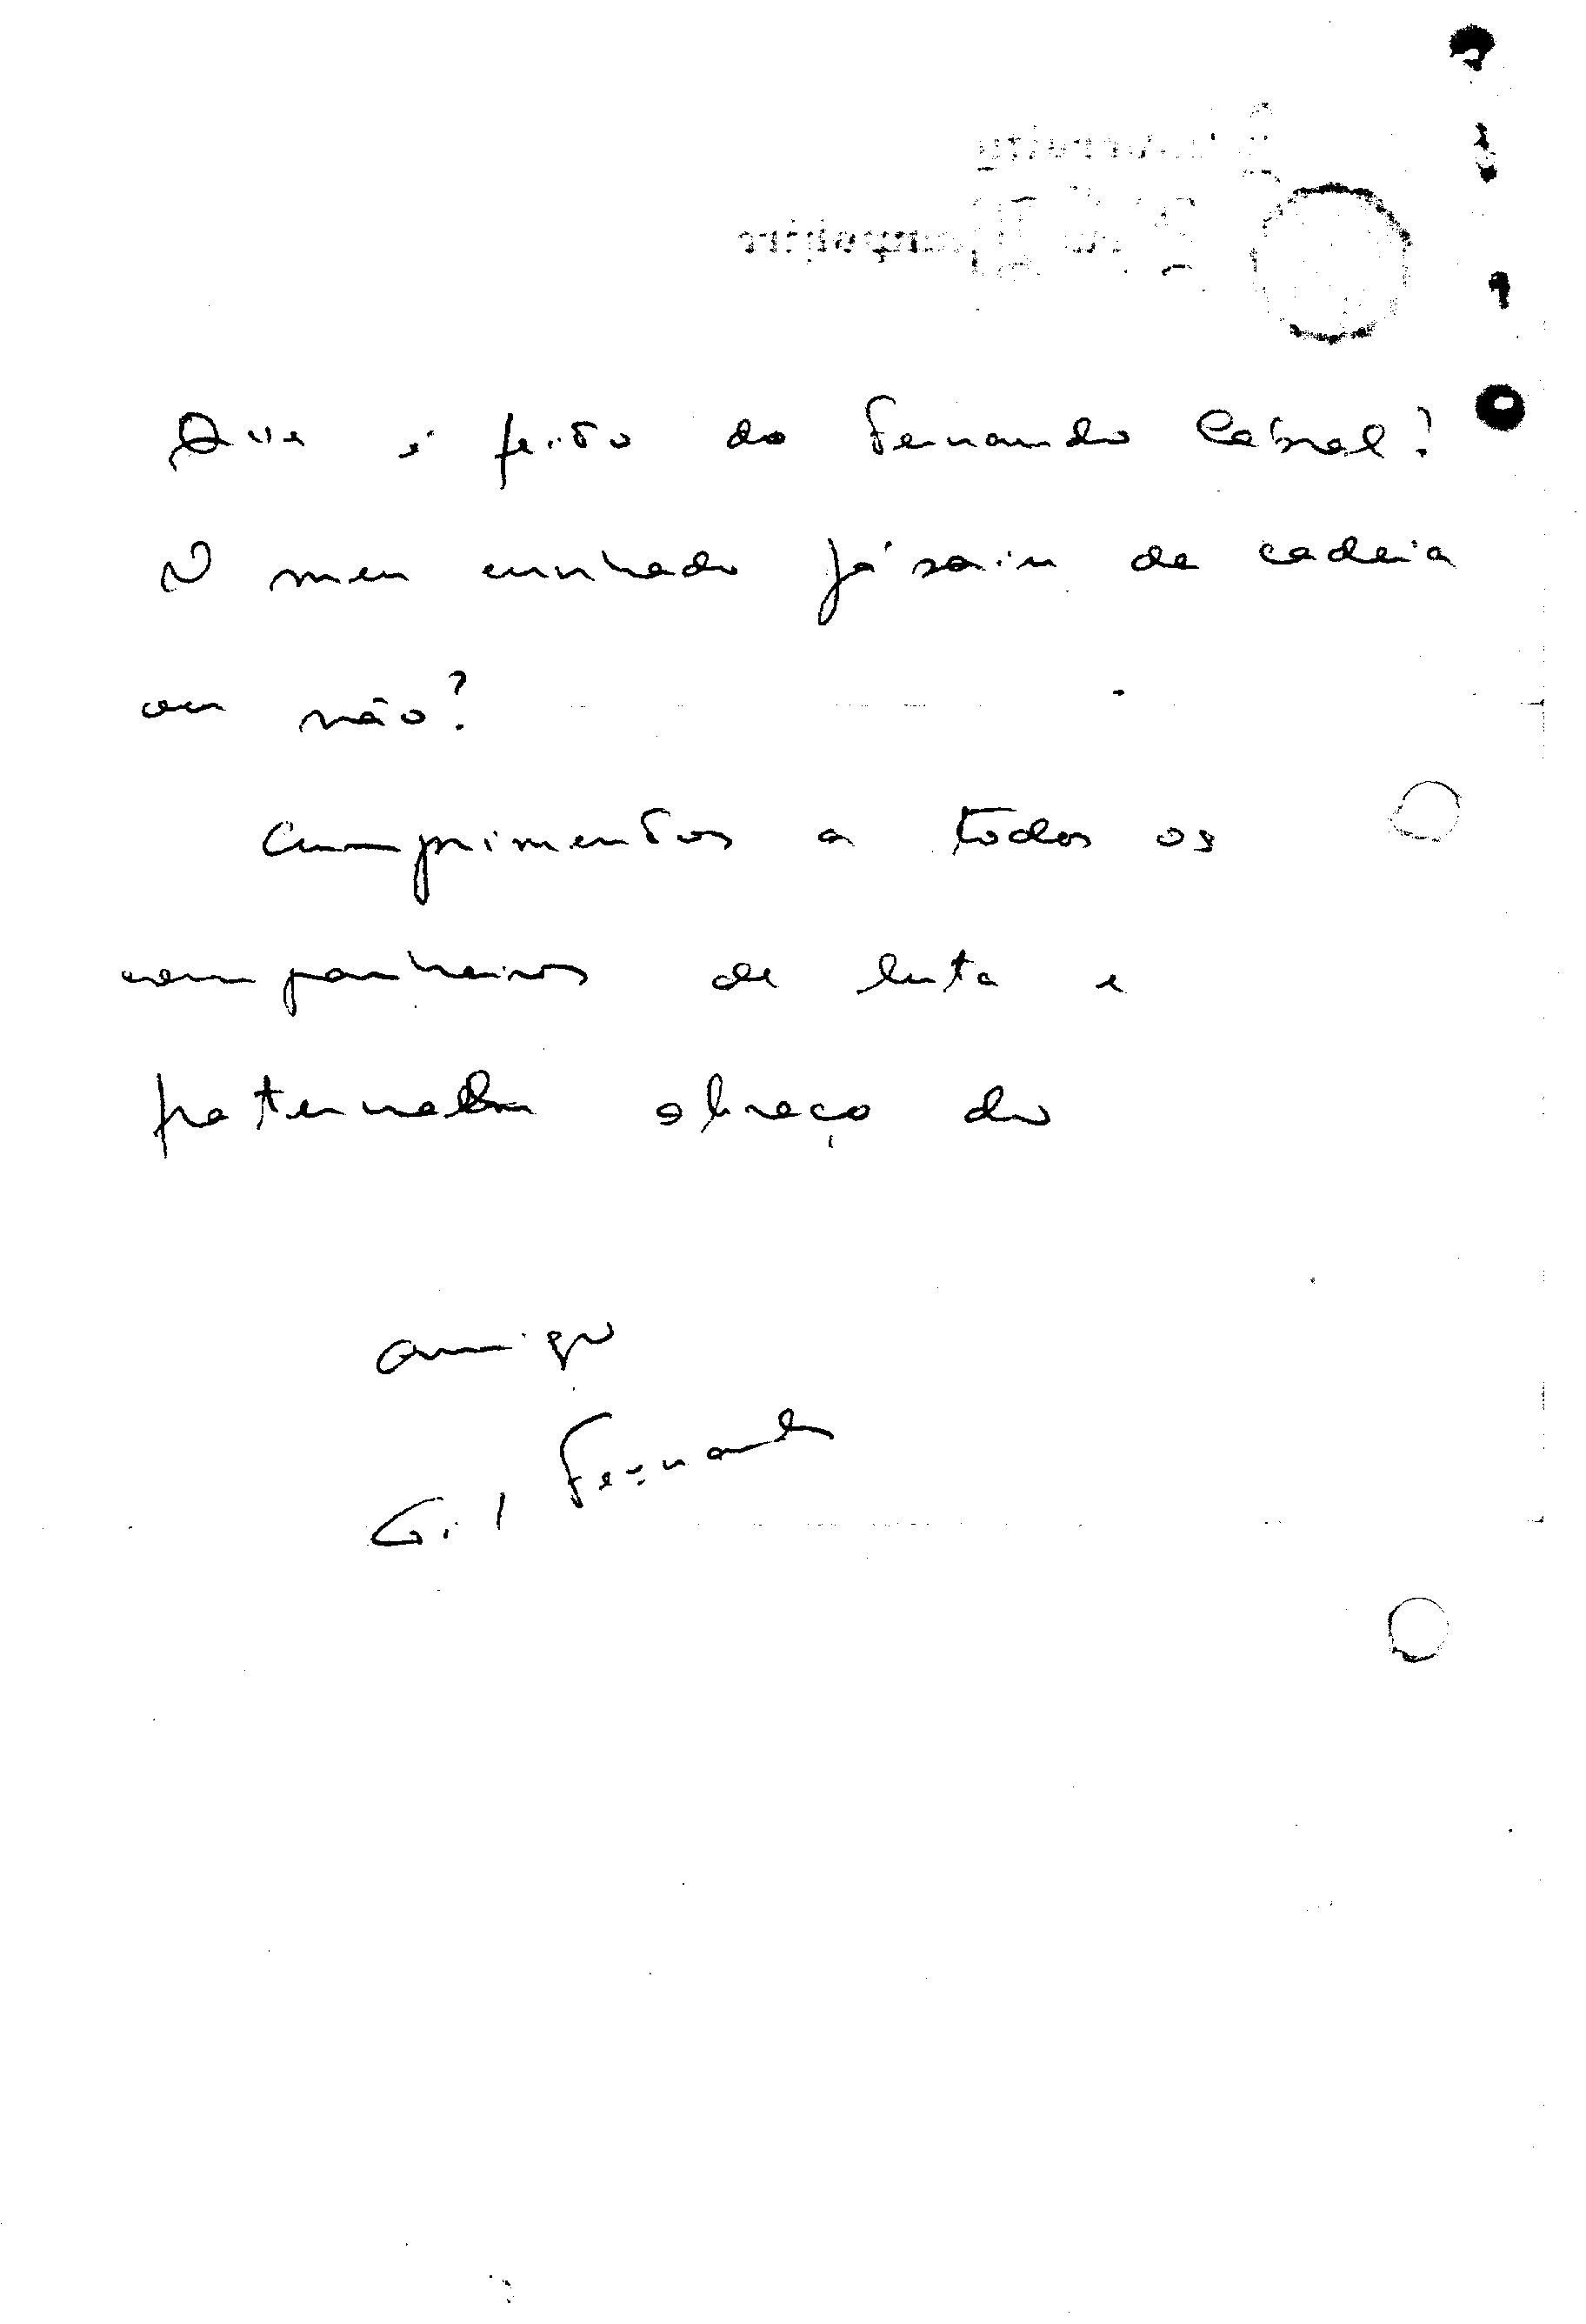 Que é feito do Fernando Cabral?
O meu cunhado já saiu da cadeia
ou não?
Cumprimentos a todos os
companheiros de luta e
fraternal abraço do
amigo
Gil Fernandes